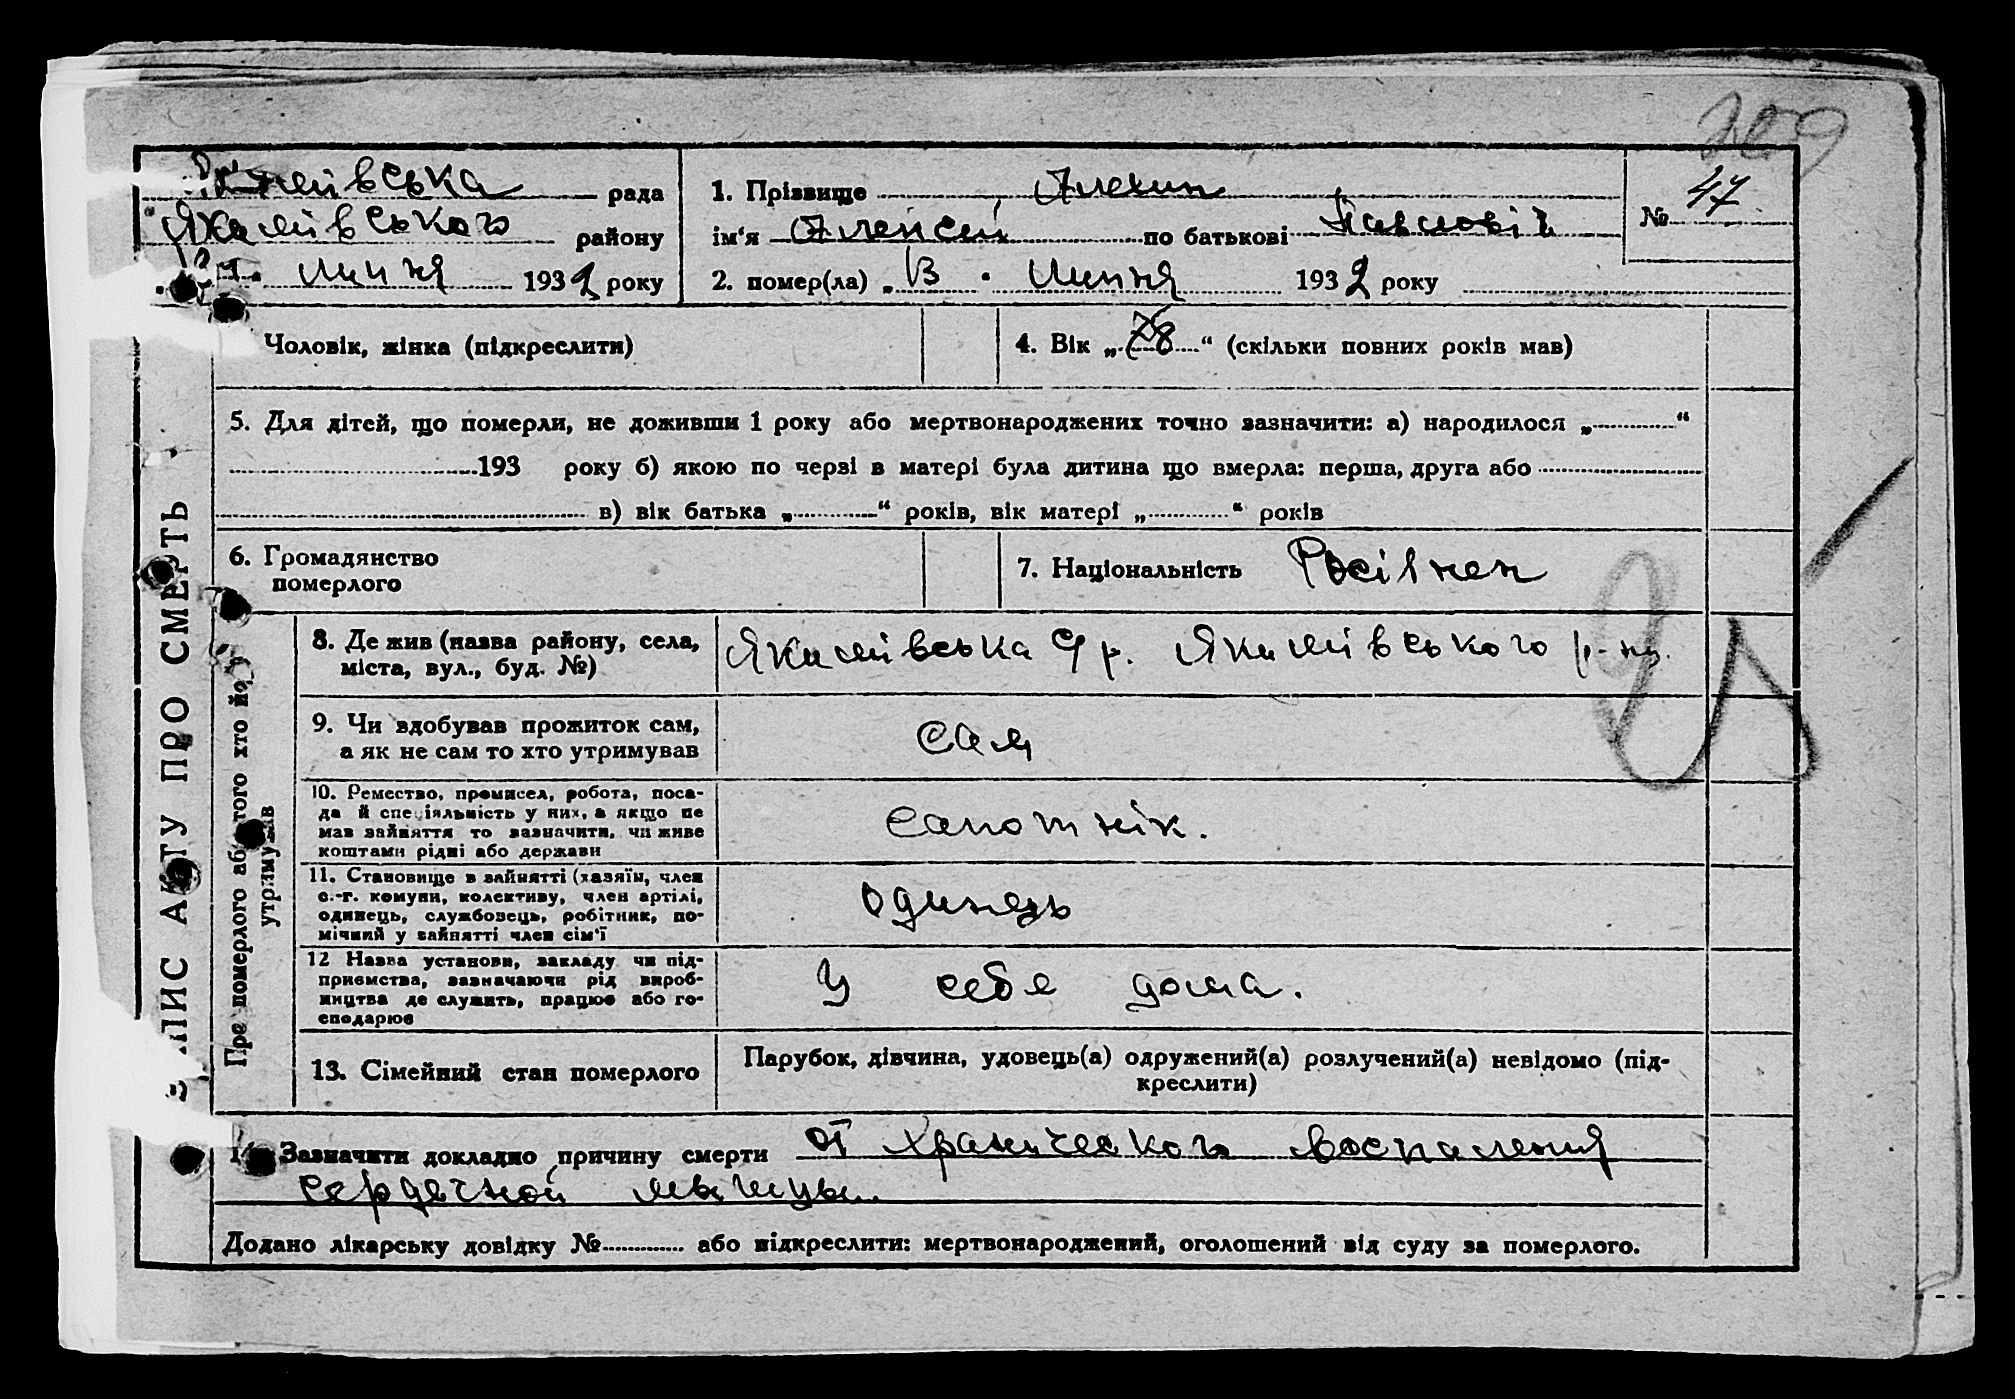 Якимівська рада
Якимівського району
липня 1932 року
1. Прізвище Алехин
ім'я Алексей по батькові Павловіч
2. помер(ла) „13 • Липня 1932 року
№ 47
Чоловік, жінка (підкреслити)
4. Вік „78“ (скільки повних років мав)
5. Для дітей, що померли, не доживши 1 року або мертвонароджених точно зазначити: а) народилося „ “
193 року б) якою по черзі в матері була дитина що вмерла: перша, друга або
в) вік батька „ “ років, вік матері „ “ років
6. Громадянство
померлого
7. Національність Росіянен
ЗАПИС АКТУ ПРО СМЕРТЬ
Про померлого або того хто його
утримував
8. Де жив (назва району, села,
міста, вул., буд. №)
Якимівська С/р. Якимівського р-ну.
9. Чи вдобував прожиток сам,
а як не сам то хто утримував
сам
10. Ремество, промисел, робота, поса-
да й спеціяльність у них, а якщо не
мав зайняття то зазначити, чи живе
коштами рідні або держави
Сапожнік.
11. Становище в зайнятті (хазяїн, член
с.-г. комуни, колективу, член артілі,
одинець, службовець, робітник, по-
мічний у зайнятті член сім'ї
одинець
12 Назва установи, закладу чи під-
приємства, зазначаючи рід вироб-
ництва де служить, працює або го-
сподарює
У себя дома.
13. Сімейний стан померлого
Парубок, дівчина, удовець(а) одружений(а) розлучений(а) невідомо (під-
креслити)
Зазначити докладно причину смерти от Хранического воспаления
сердечной мышцы.
Додано лікарську довідку № або підкреслити: мертвонароджений, оголошений від суду за померлого.